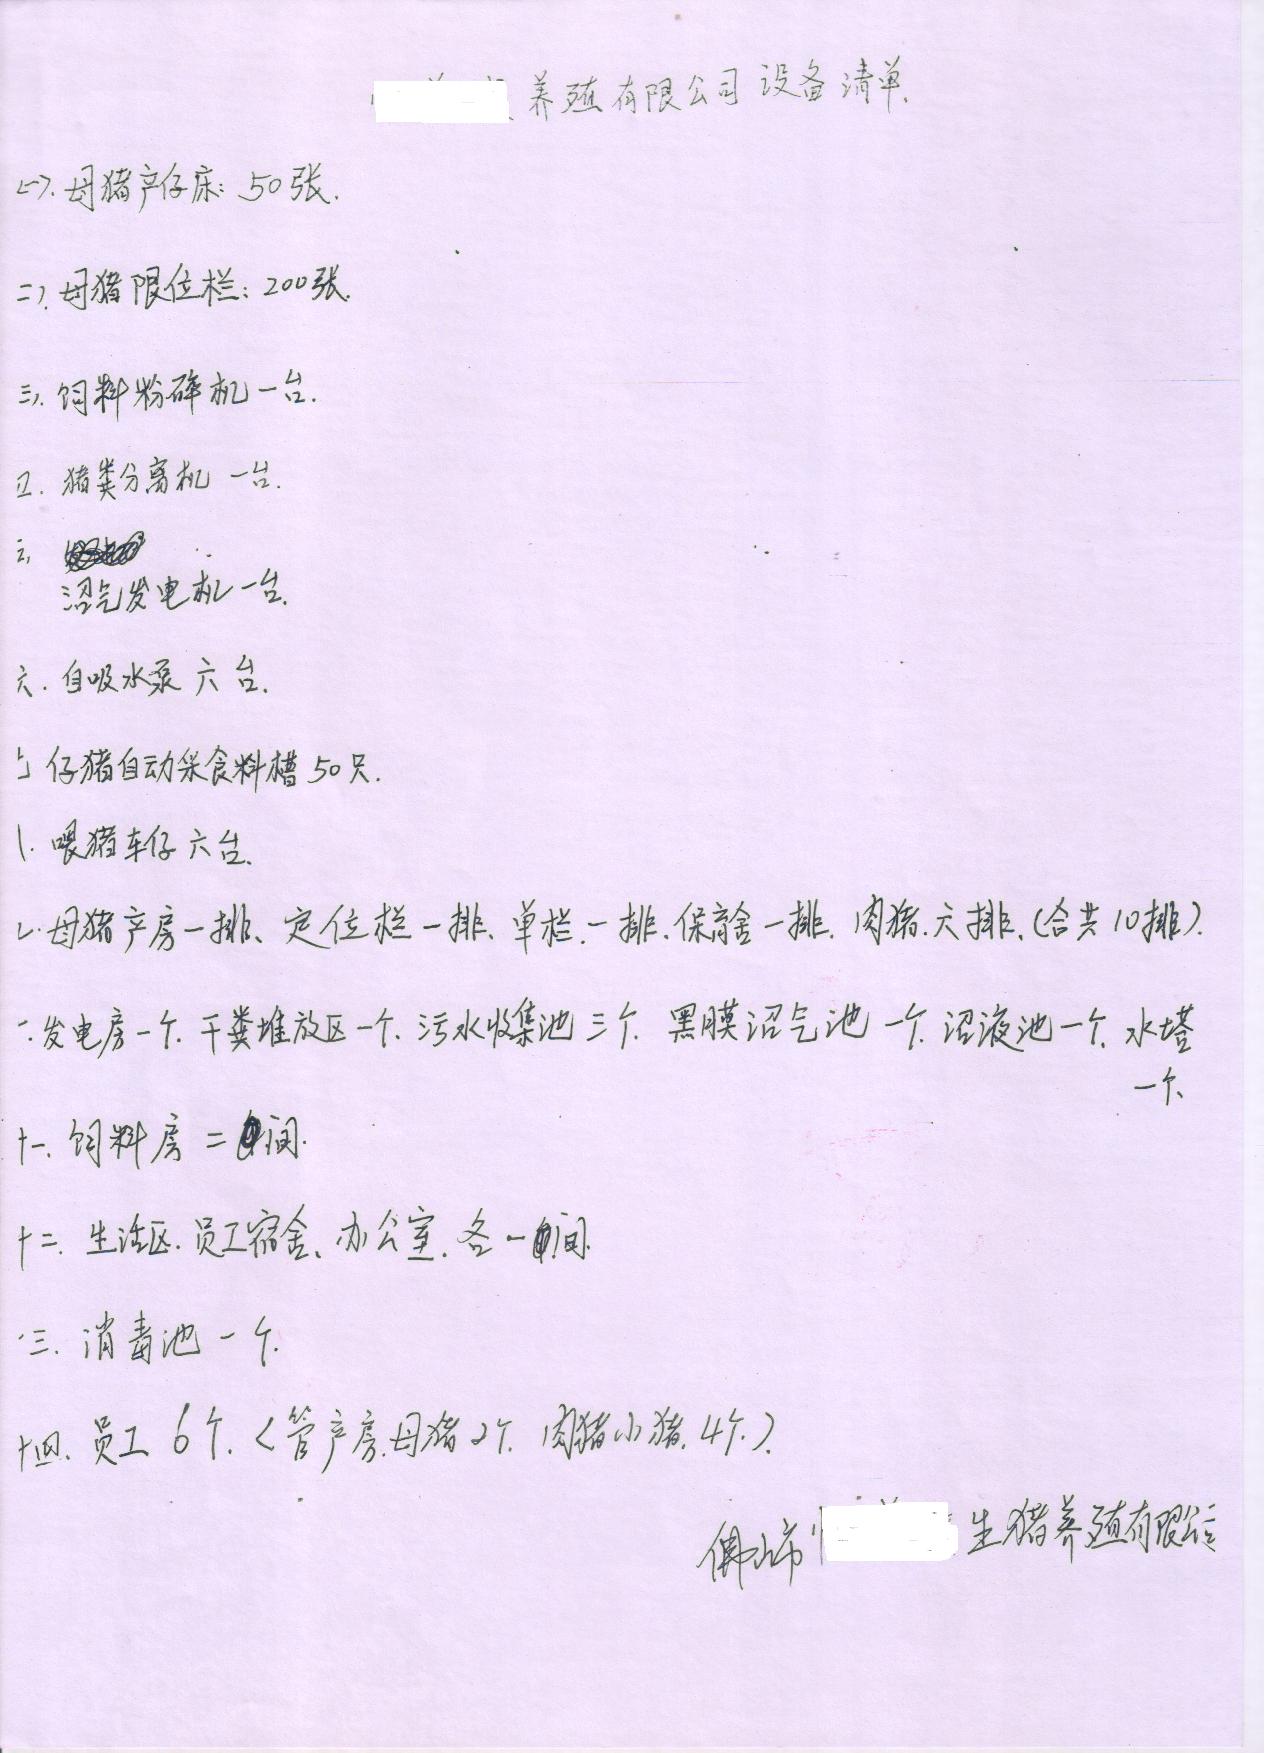 养殖有限公司设备清单.
(一). 母猪产仔床: 50张.
二). 母猪限位栏: 200张.
三). 饲料粉碎机一台.
四. 猪粪分离机 一台.
五.
沼气发电机一台.
六. 自吸水泵 六台.
七 仔猪自动采食料槽50只.
八. 喂猪车仔六台.
九. 母猪产房一排、定位栏一排、单栏.一排.保育舍一排. 肉猪.六排.(合共10排).
一. 发电房一个. 干粪堆放区一个. 污水收集池三个. 黑膜沼气池一个. 沼液池一个. 水塔
一个.
十一. 饲料房二间.
十二. 生活区. 员工宿舍、办公室. 各一间.
十三. 消毒池一个.
十四. 员工6个. (管产房.母猪2个. 肉猪小猪.4个.).
佛山市 生猪养殖有限公司